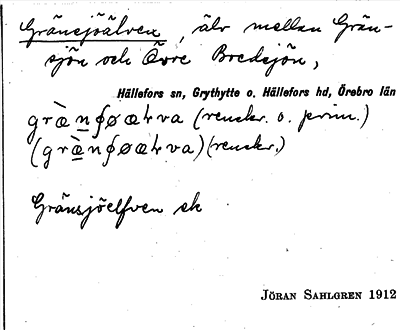 Gränsjöälven, älv mellan Grän-
sjön och Övre Bredsjön,
Hällefors sn, Grythytte o. Hällefors hd, Örebro län
græ̀nʃøælva (renskr. o. prim.)
(græ̀nʃøælva) (renskr.)
Gränsjöelfven sk
Jöran Sahlgren 1912